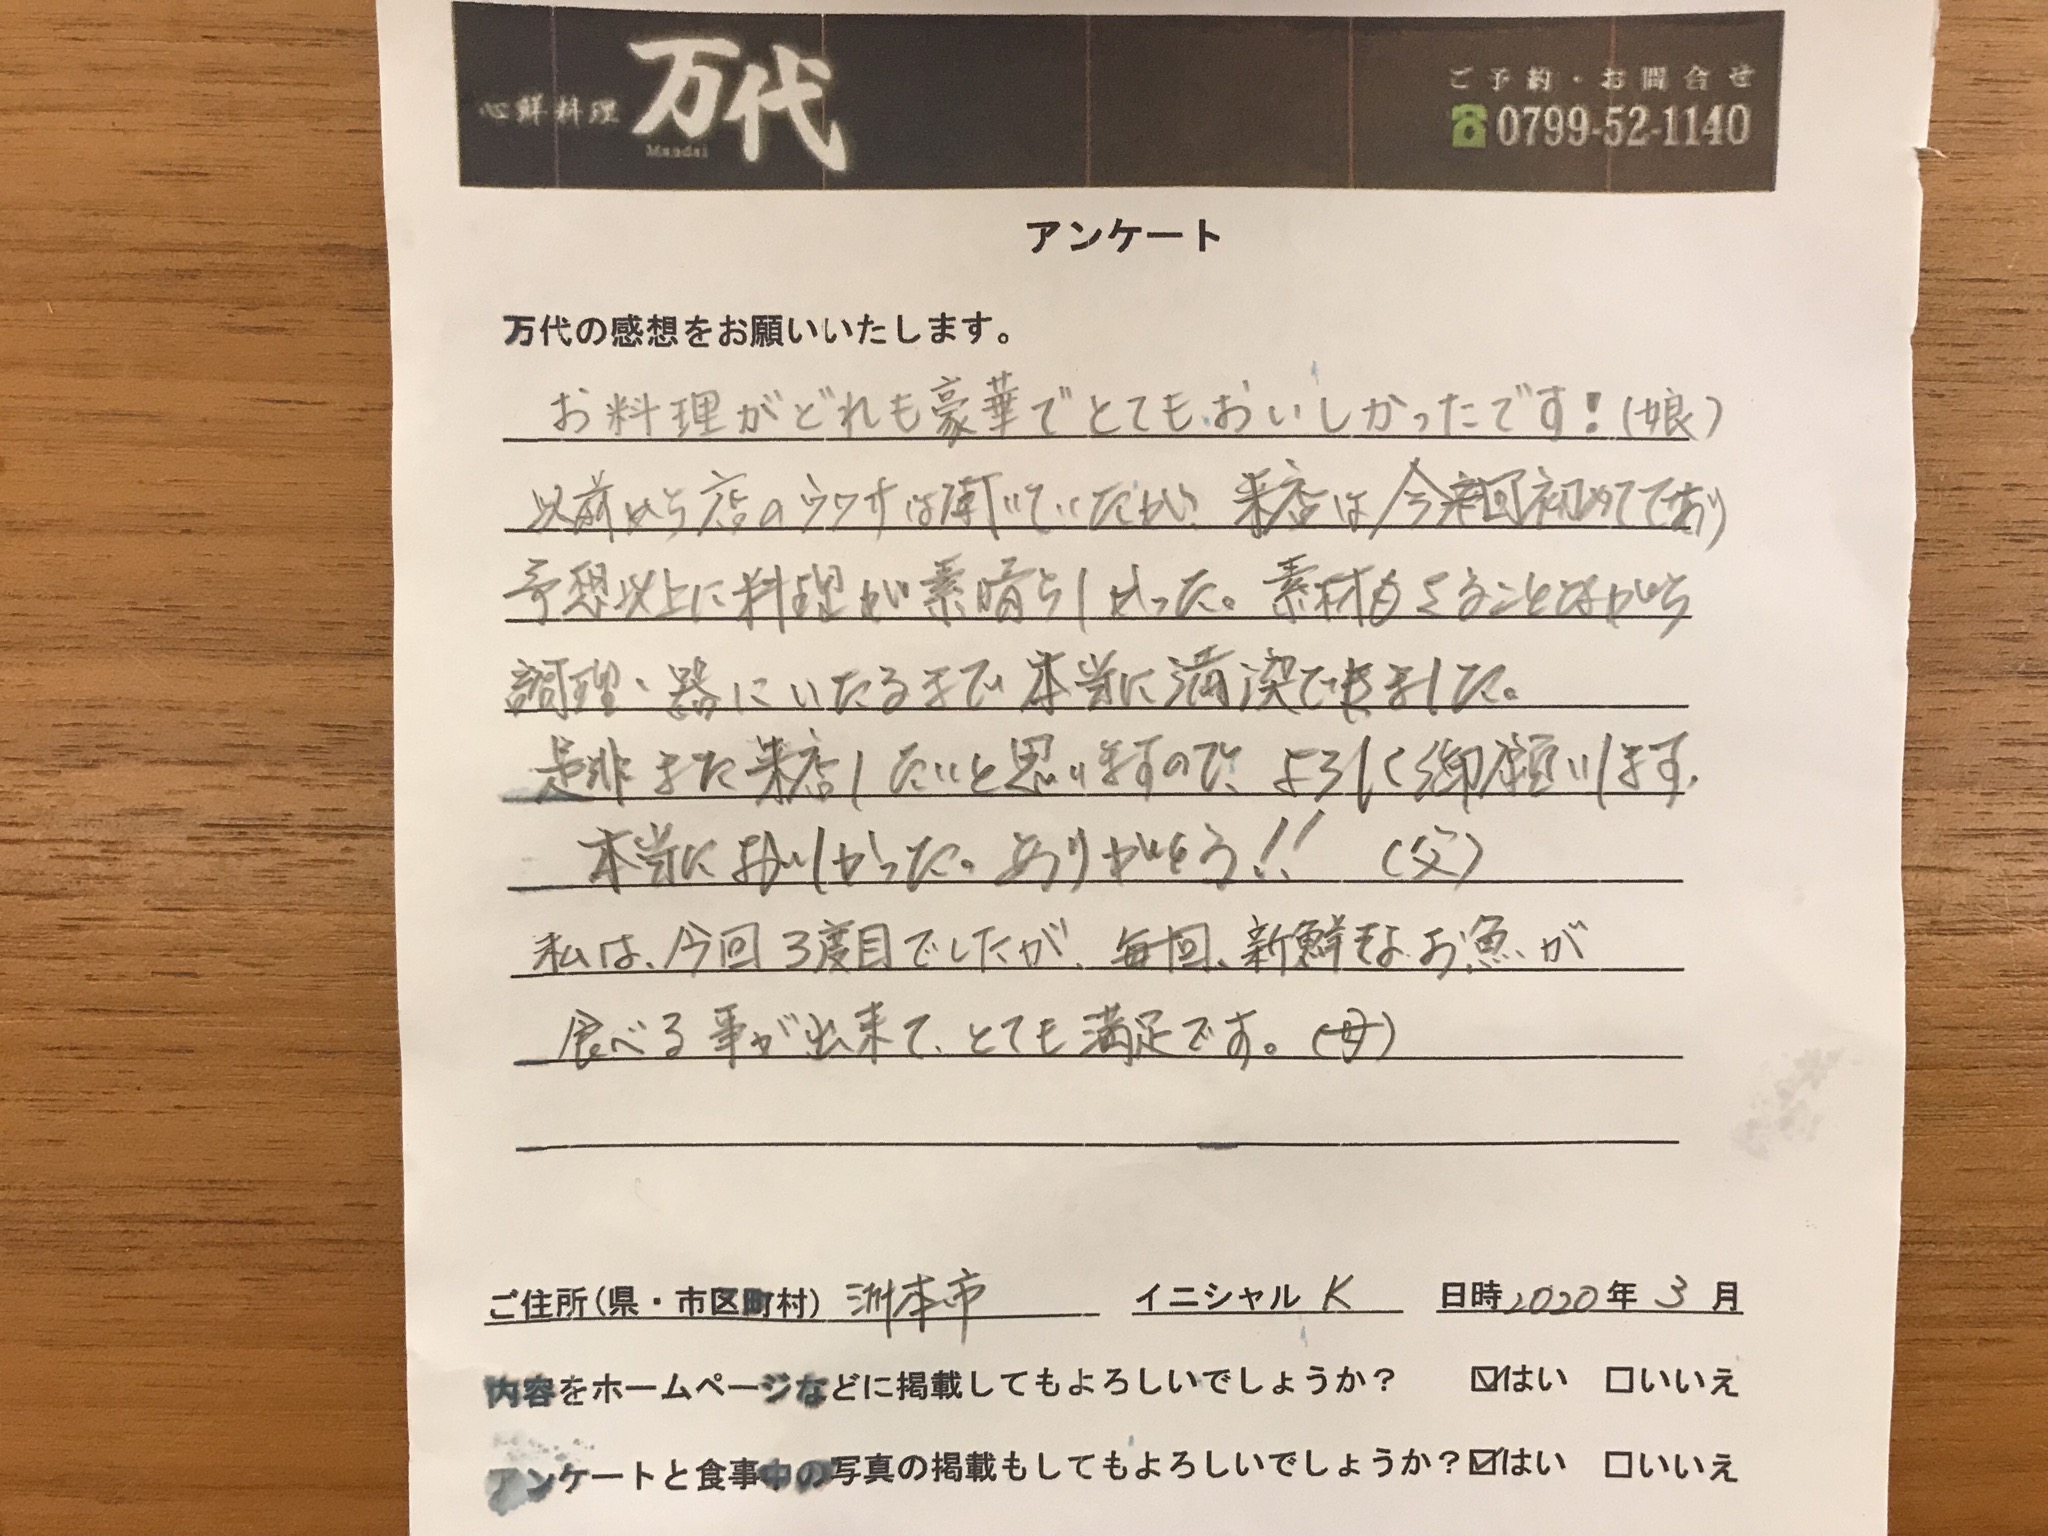 心鮮料理 万代
Mandai
ご予約・お問合せ
☎0799-52-1140
アンケート
万代の感想をお願いいたします。
お料理がどれも豪華でとてもおいしかったです!(娘)
以前から店のウワサは聞いていたが、来店は今回初めてであり
予想以上に料理が素晴らしかった。素材もさることながら
調理、器にいたるまで本当に満喫できました。
是非また来店したいと思いますので、よろしく御願いします。
本当においしかった。ありがとう!!(父)
私は、今回3度目でしたが、毎回、新鮮なお魚が
食べる事が出来て、とても満足です。(母)
ご住所(県・市区町村) 洲本市 イニシャル K 日時 2020年 3 月
内容をホームページなどに掲載してもよろしいでしょうか? ☑はい □いいえ
アンケートと食事中の写真の掲載もしてもよろしいでしょうか?☑はい □いいえ